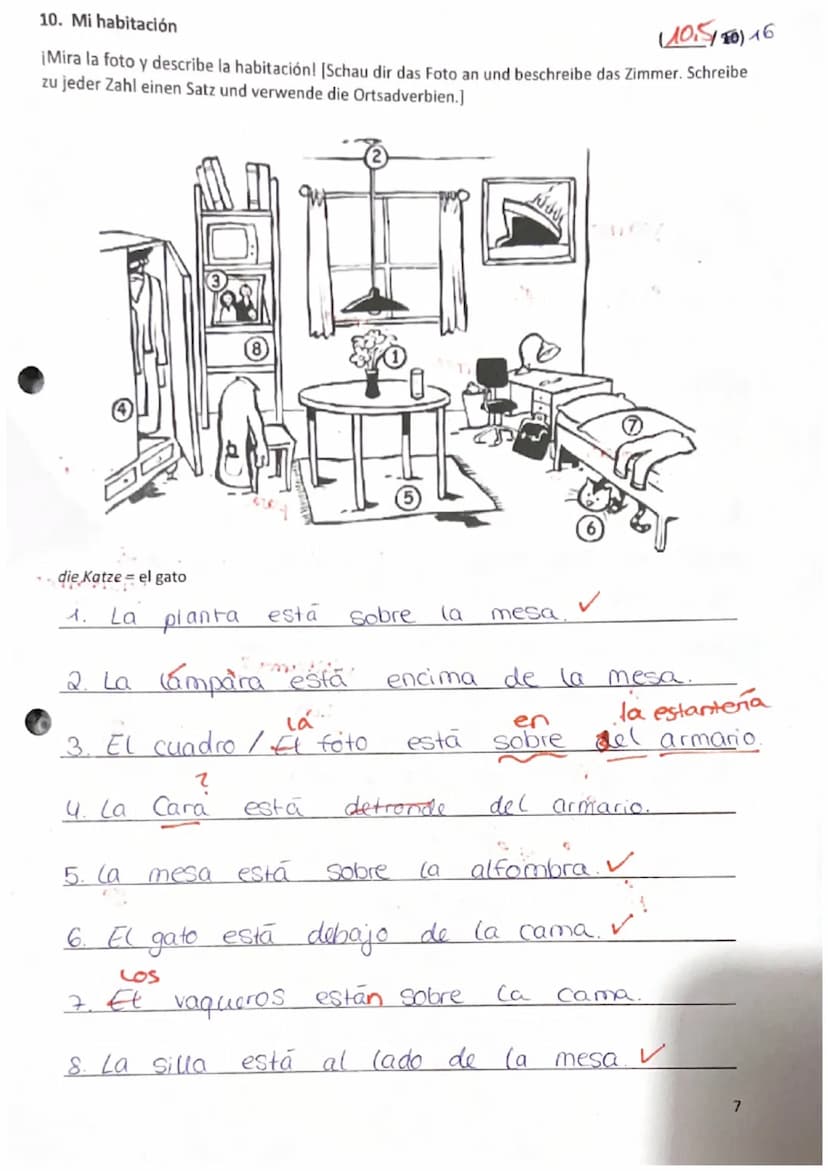 10. Mi habitación
(10,5/10) 16
¡Mira la foto y describe la habitación! [Schau dir das Foto an und beschreibe das Zimmer. Schreibe
zu jeder Zahl einen Satz und verwende die Ortsadverbien.]
2
3
8
1
4
7
5
6
die Katze = el gato
1. La planta está sobre la mesa. ✓
2. La lámpara está encima de la mesa.
la en la estantería
3. El cuadro / El foto está sobre del armario.
?
4. La Cara está detronde del armario.
5. La mesa está sobre la alfombra. ✓
6. El gato está debajo de la cama. ✓
Los
7. El vaqueros están sobre la cama.
8. La silla está al lado de la mesa. ✓
7